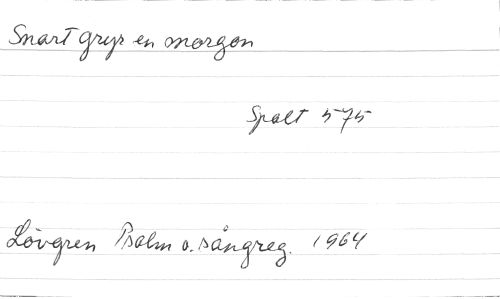 Snart gryr en morgon
Spalt 575
Lövgren Psalm o. sångreg. 1964